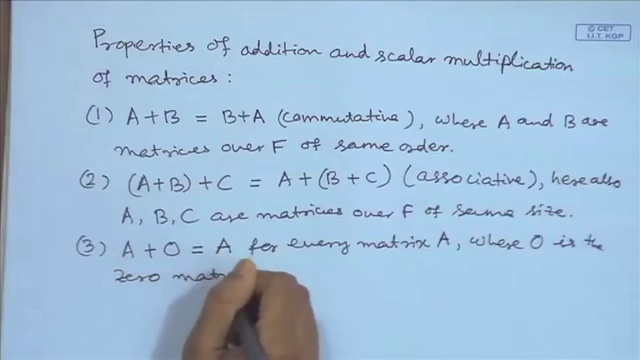 © CET
I.I.T. KGP
Properties of addition and scalar multiplication
of matrices :
(1) A+B = B+A (commutative), where A and B are
matrices over F of same order.
(2) (A+B) + C = A + (B + C) (associative), here also
A, B, C are matrices over F of same size.
(3) A + O = A for every matrix A, where O is the
zero mat